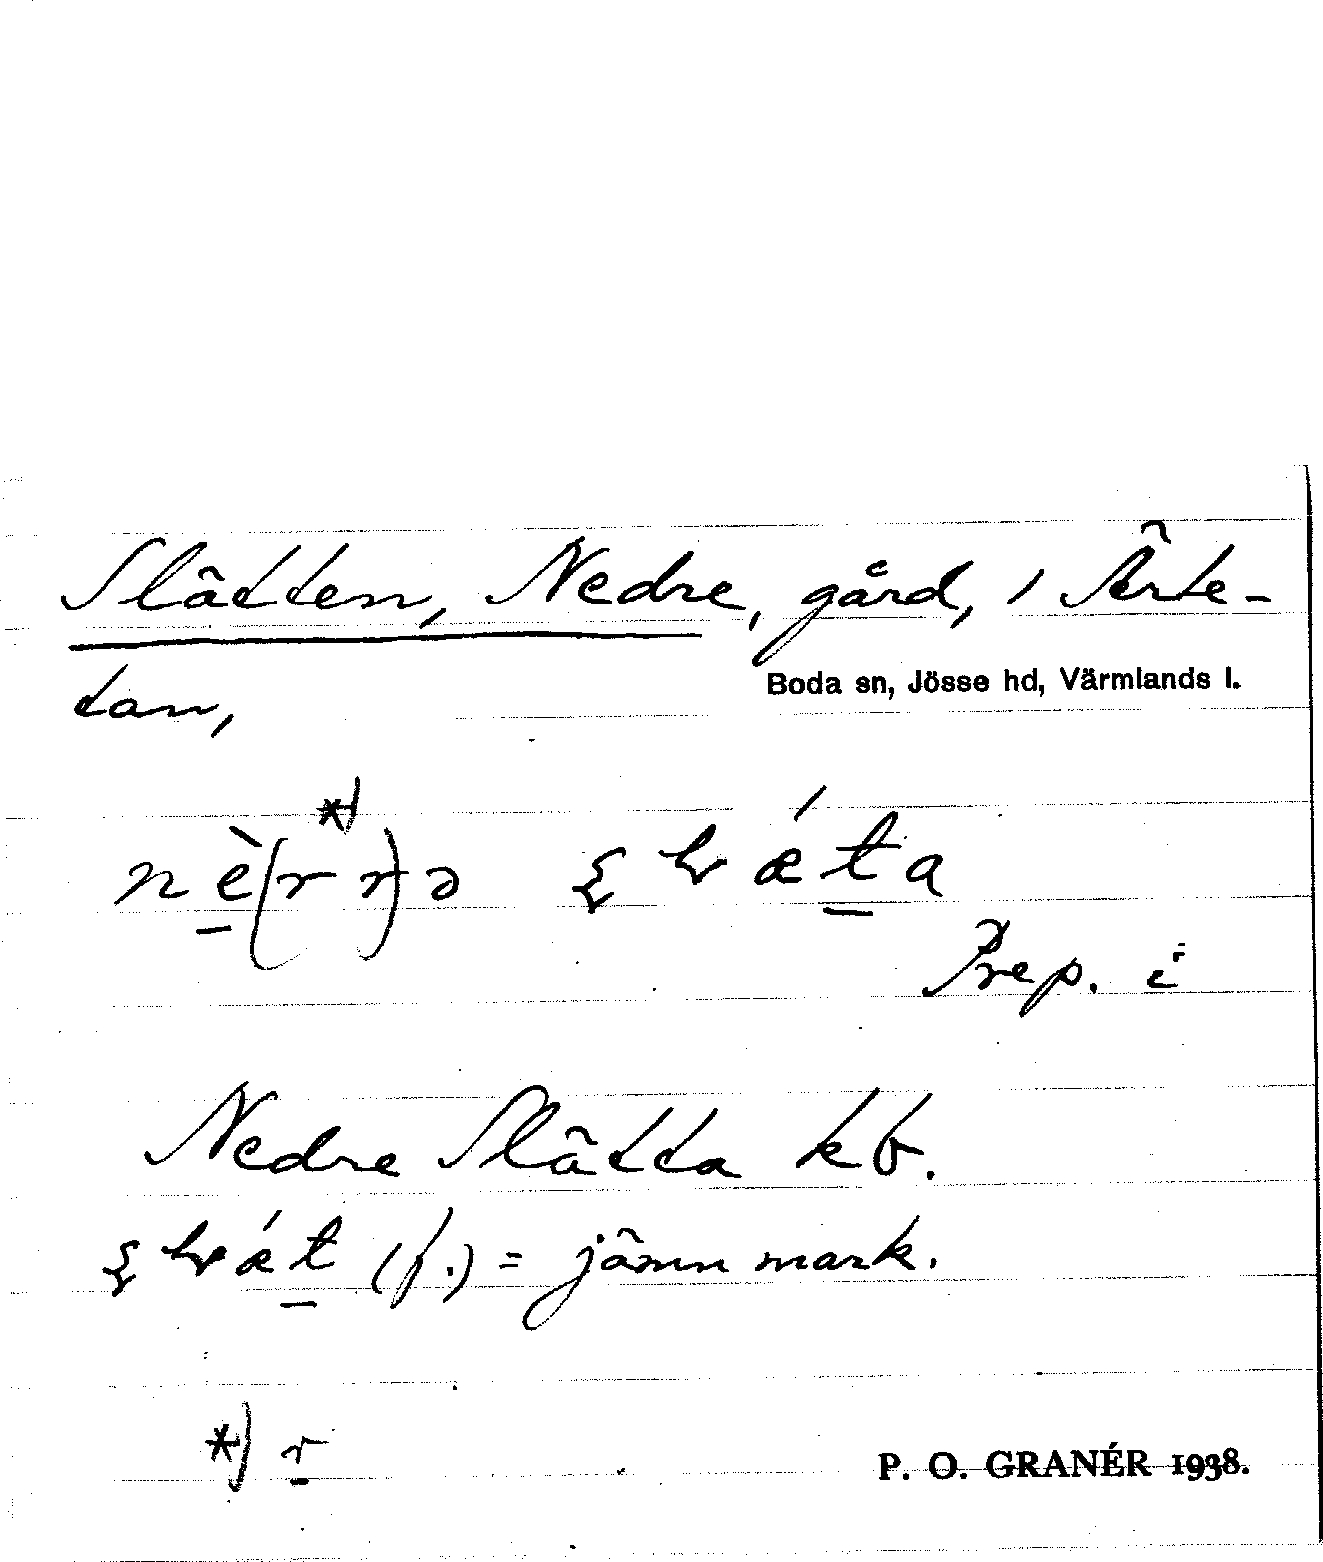 Slätten, Nedre, gård, i Ärte-
tan,
Boda sn, Jösse hd, Värmlands l.
Prep. i
Nedre Slätta kb.
(f.) = jämn mark.
*) r
P. O. GRANÉR 1938.